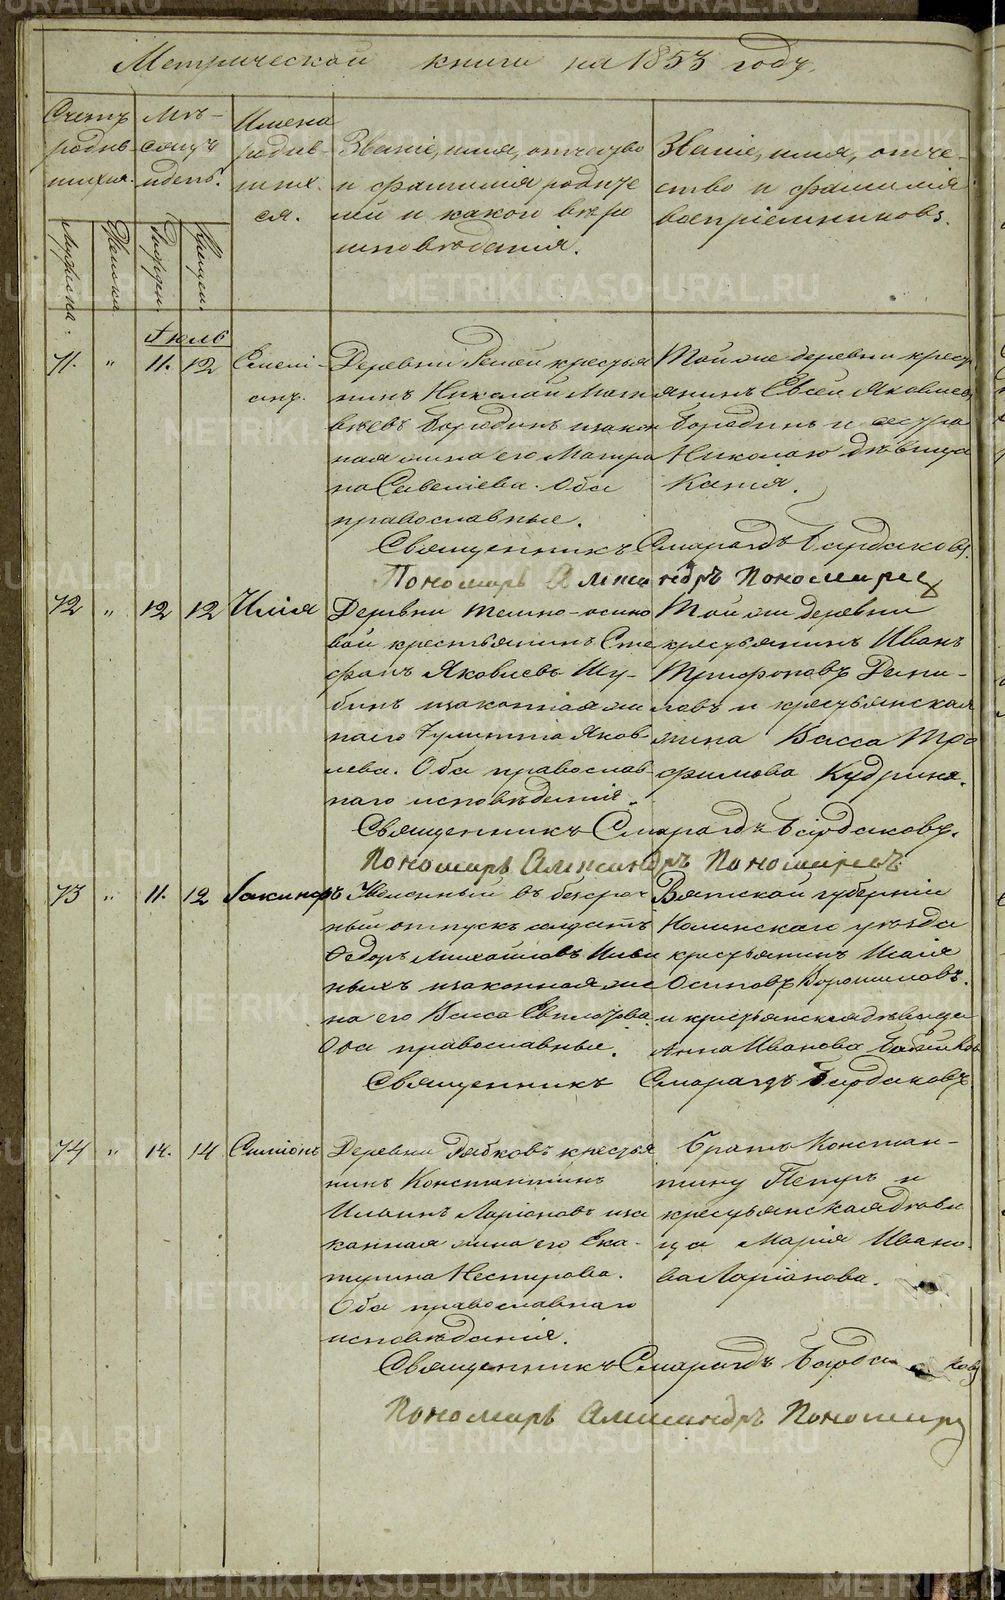 Метрической книги на 1853 годъ
Счетъ родив-шихся.
Мѣ-сяцъ и день.
Имена родив-шихся.
Званіе, имя, отчество
и фамилія родите
лей и какого вѣро
исповѣданія.
Званіе, имя, отче-
ство и фамилія
воспріемниковъ.
Мужска. Женска. Рожден. Крещен.
Іюль
71. " 11. 12 Емелі-
анъ.
Деревни крестья
нинъ Николай Мат
вѣевъ Бородинъ и закон
ная жена его Матро
на Савеліева. Оба
православные.
Той же деревни крест
янинъ Евсей Яковлевъ
Бородинъ и сестра
Николаю дѣвица
Священникъ Смарагдъ Бардаковъ.
Пономарь Александръ Пономаревъ
72 " 12 12 Илія
Деревни Темно-осино
вой крестьянинъ Сте
фанъ Яковлевъ Шу-
бинъ и законная же
на его Іулитта Яков
лева. Оба православ-
наго исповѣданія.
Той же деревни
крестьянинъ Иванъ
Трифоновъ Дани-
ловъ и крестьянская
жена Васса Тро
фимова Кудрина.
Священникъ Смарагдъ Бардаковъ.
Пономарь Александръ Пономаревъ
73 " 11. 12 Іакинфъ
Уволенный въ безсроч
ный отпускъ солдатъ
Ѳедоръ Михайловъ Ильи
ныхъ и законная же
на его Васса Евпатова.
Оба православные.
Вятской губерніи
Нолинскаго уѣзда
крестьянинъ Исаія
Осиповъ Ворошиловъ.
и крестьянская дѣвица
Анна Иванова
Священникъ Смарагдъ Бардаковъ.
74 " 14. 14 Симеонъ
Деревни Рябковъ крестья
нинъ Константинъ
Ильинъ Ларіоновъ и за
конная жена его Ека-
терина Нестерова.
Оба православнаго
исповѣданія.
Братъ Констан-
тину Петръ и
крестьянская дѣви
ца Марія Ивано
ва Ларіонова.
Священникъ Смарагдъ Бардаковъ
Пономарь Александръ Пономаревъ
METRIKI.GASO-URAL.RU